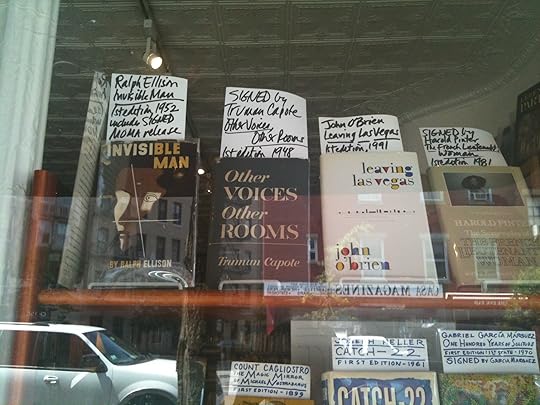 Ralph Ellison
Invisible Man
1st edition, 1952
include SIGNED
MOMA release
SIGNED by
Truman Capote
Other Voices,
Other Rooms
1st edition 1948
John O'Brien
Leaving Las Vegas
1st edition, 1991
SIGNED by
Harold Pinter
The French Lieutenant's
Woman
1st edition, 1981
INVISIBLE
MAN
BY RALPH ELLISON
Other
VOICES
Other
ROOMS
Truman Capote
leaving
las vegas
john
o'brien
HAROLD PINTER
CASA MAGAZINES
COUNT CAGLIOSTRO
THE MAGIC MIRROR
OF MICHAEL NOSTRADAMUS
FIRST EDITION - 1899
JOSEPH HELLER
CATCH-22
FIRST EDITION - 1961
CATCH-22
GABRIEL GARCÍA MÁRQUEZ
ONE HUNDRED YEARS OF SOLITUDE
FIRST EDITION / 1ST STATE - 1970
SIGNED BY GARCIA MARQUEZ